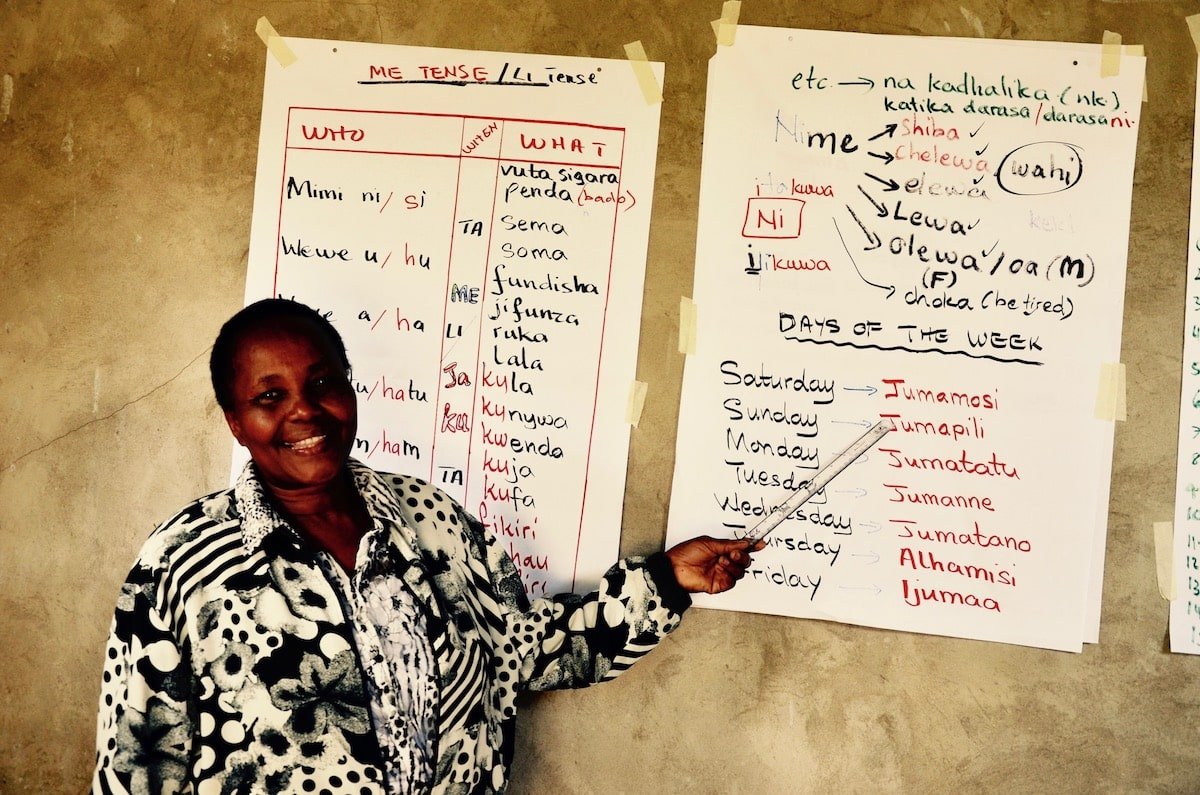 ME TENSE / LI Tense
WHO WHEN WHAT
vuta sigara
penda (bado)
Mimi ni / si
TA
sema
soma
Wewe u / hu
fundisha
ME
jifunza
a / ha
LI
ruka
lala
JA
kula
u / hatu
kunywa
KU
kwenda
m / ham
kuja
TA
kufa
fikiri
etc → na kadhalika (nk).
katika darasa / darasani.
Nime
Shiba ✓
Chelewa
wahi
elewa
Lewa ✓
Olewa ✓ / oa (M)
(F)
choka (be tired)
itakuwa
Ni
ilikuwa
DAYS OF THE WEEK
Saturday → Jumamosi
Sunday → Jumapili
Monday Jumatatu
Tuesday → Jumanne
Wednesday → Jumatano
Thursday → Alhamisi
Friday → Ijumaa